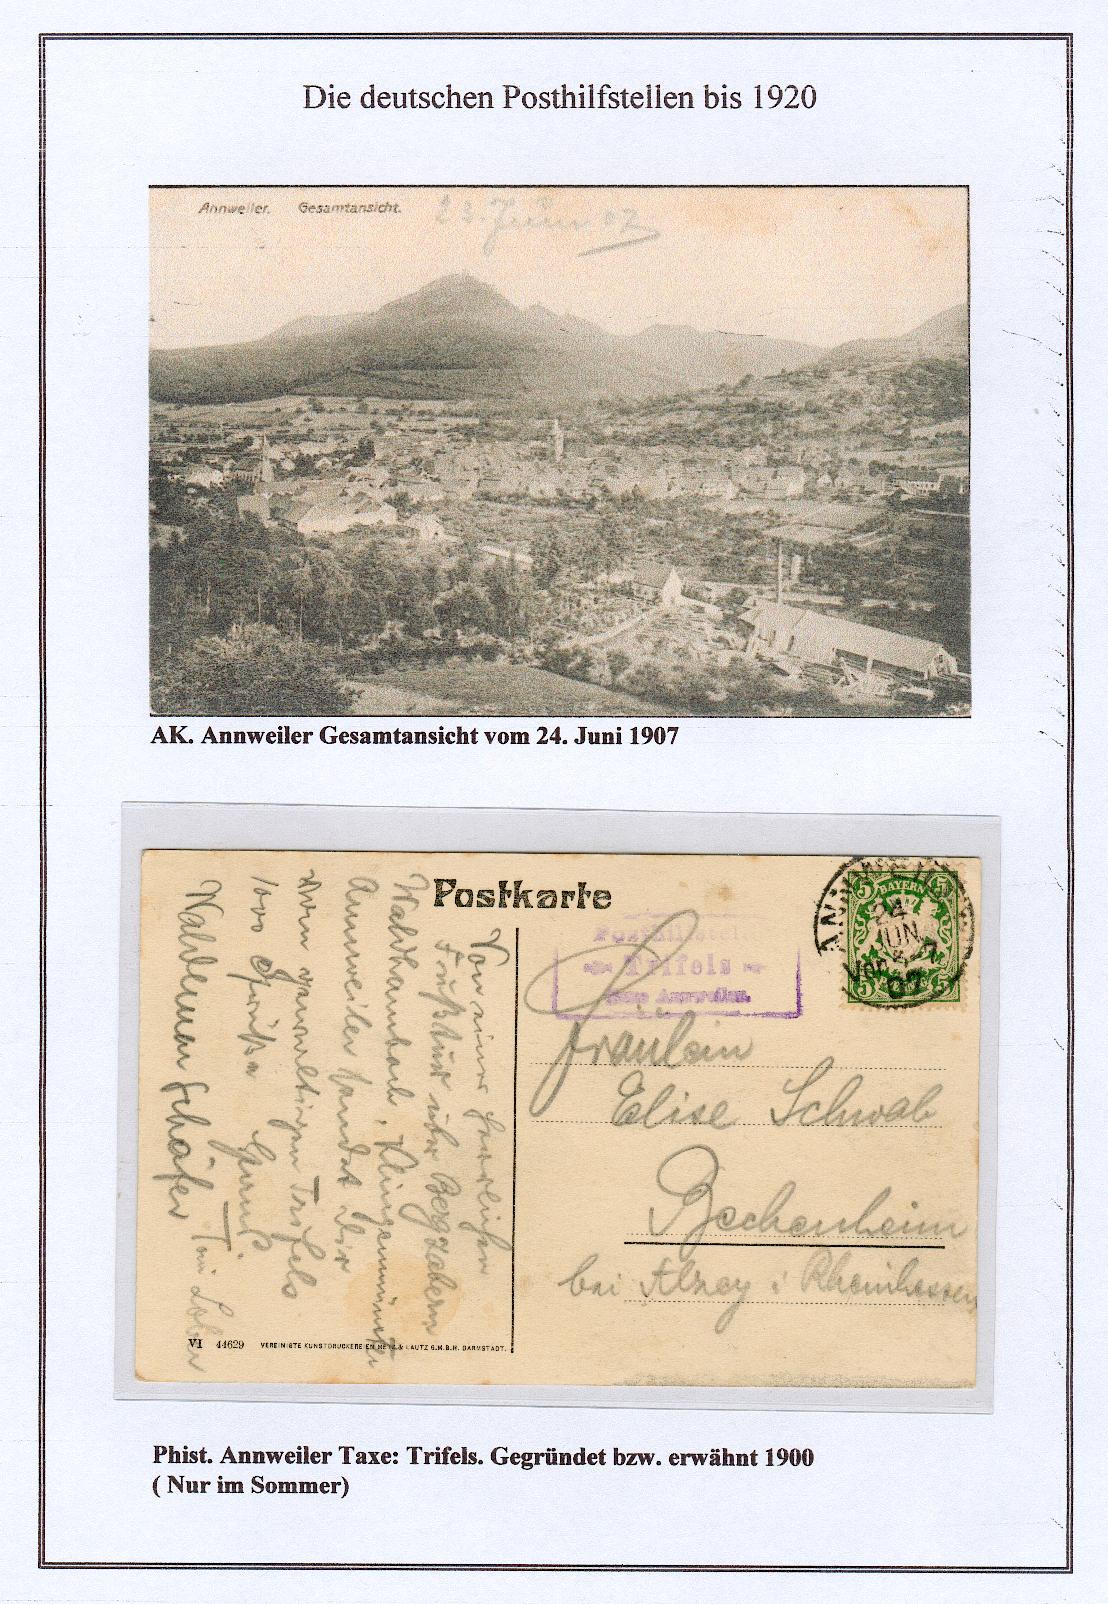 Die deutschen Posthilfstellen bis 1920
Annweiler. Gesamtansicht.
23. Juni 07
AK. Annweiler Gesamtansicht vom 24. Juni 1907
Postkarte
Posthilfstelle
Trifels
Taxe Annweiler.
BAYERN
5 5
5 5
24
JUN
Vor
07
Fräulein
Elise Schwab
Bechenheim
bei Alzey i Rheinhessen
Von einer herrlichen
Fußtour über Bergzabern
Waldhambach, Klingenmünster
Annweiler sendet dir
vom gewaltigen Trifels
1000 Grüße
Waldemar Schäfer
VI 44629 VEREINIGTE KUNSTDRUCKEREIEN METZ & LAUTZ G.M.B.H. DARMSTADT.
Phist. Annweiler Taxe: Trifels. Gegründet bzw. erwähnt 1900
( Nur im Sommer)